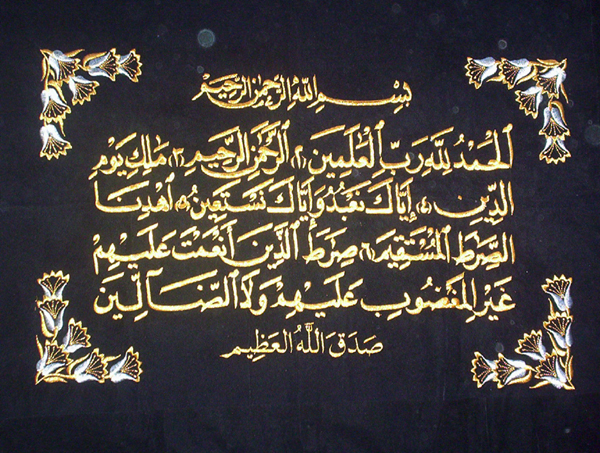 بِسْمِ اللهِ الرَّحْمٰنِ الرَّحِيْمِ
اَلْحَمْدُ لِلّٰهِ رَبِّ الْعٰلَمِينَ ﴿٢﴾ اَلرَّحْمٰنِ الرَّحِيْمِ ﴿٣﴾ مٰلِكِ يَوْمِ
الدِّينِ ﴿٤﴾ إِيَّاكَ نَعْبُدُ وَإِيَّاكَ نَسْتَعِينُ ﴿٥﴾ اهْدِنَا
الصِّرٰطَ الْمُسْتَقِيمَ ﴿٦﴾ صِرٰطَ الَّذِينَ أَنْعَمْتَ عَلَيْهِمْ
غَيْرِ الْمَغْضُوبِ عَلَيْهِمْ وَلَا الضَّآلِّينَ
صَدَقَ اللّٰهُ الْعَظِيمِ